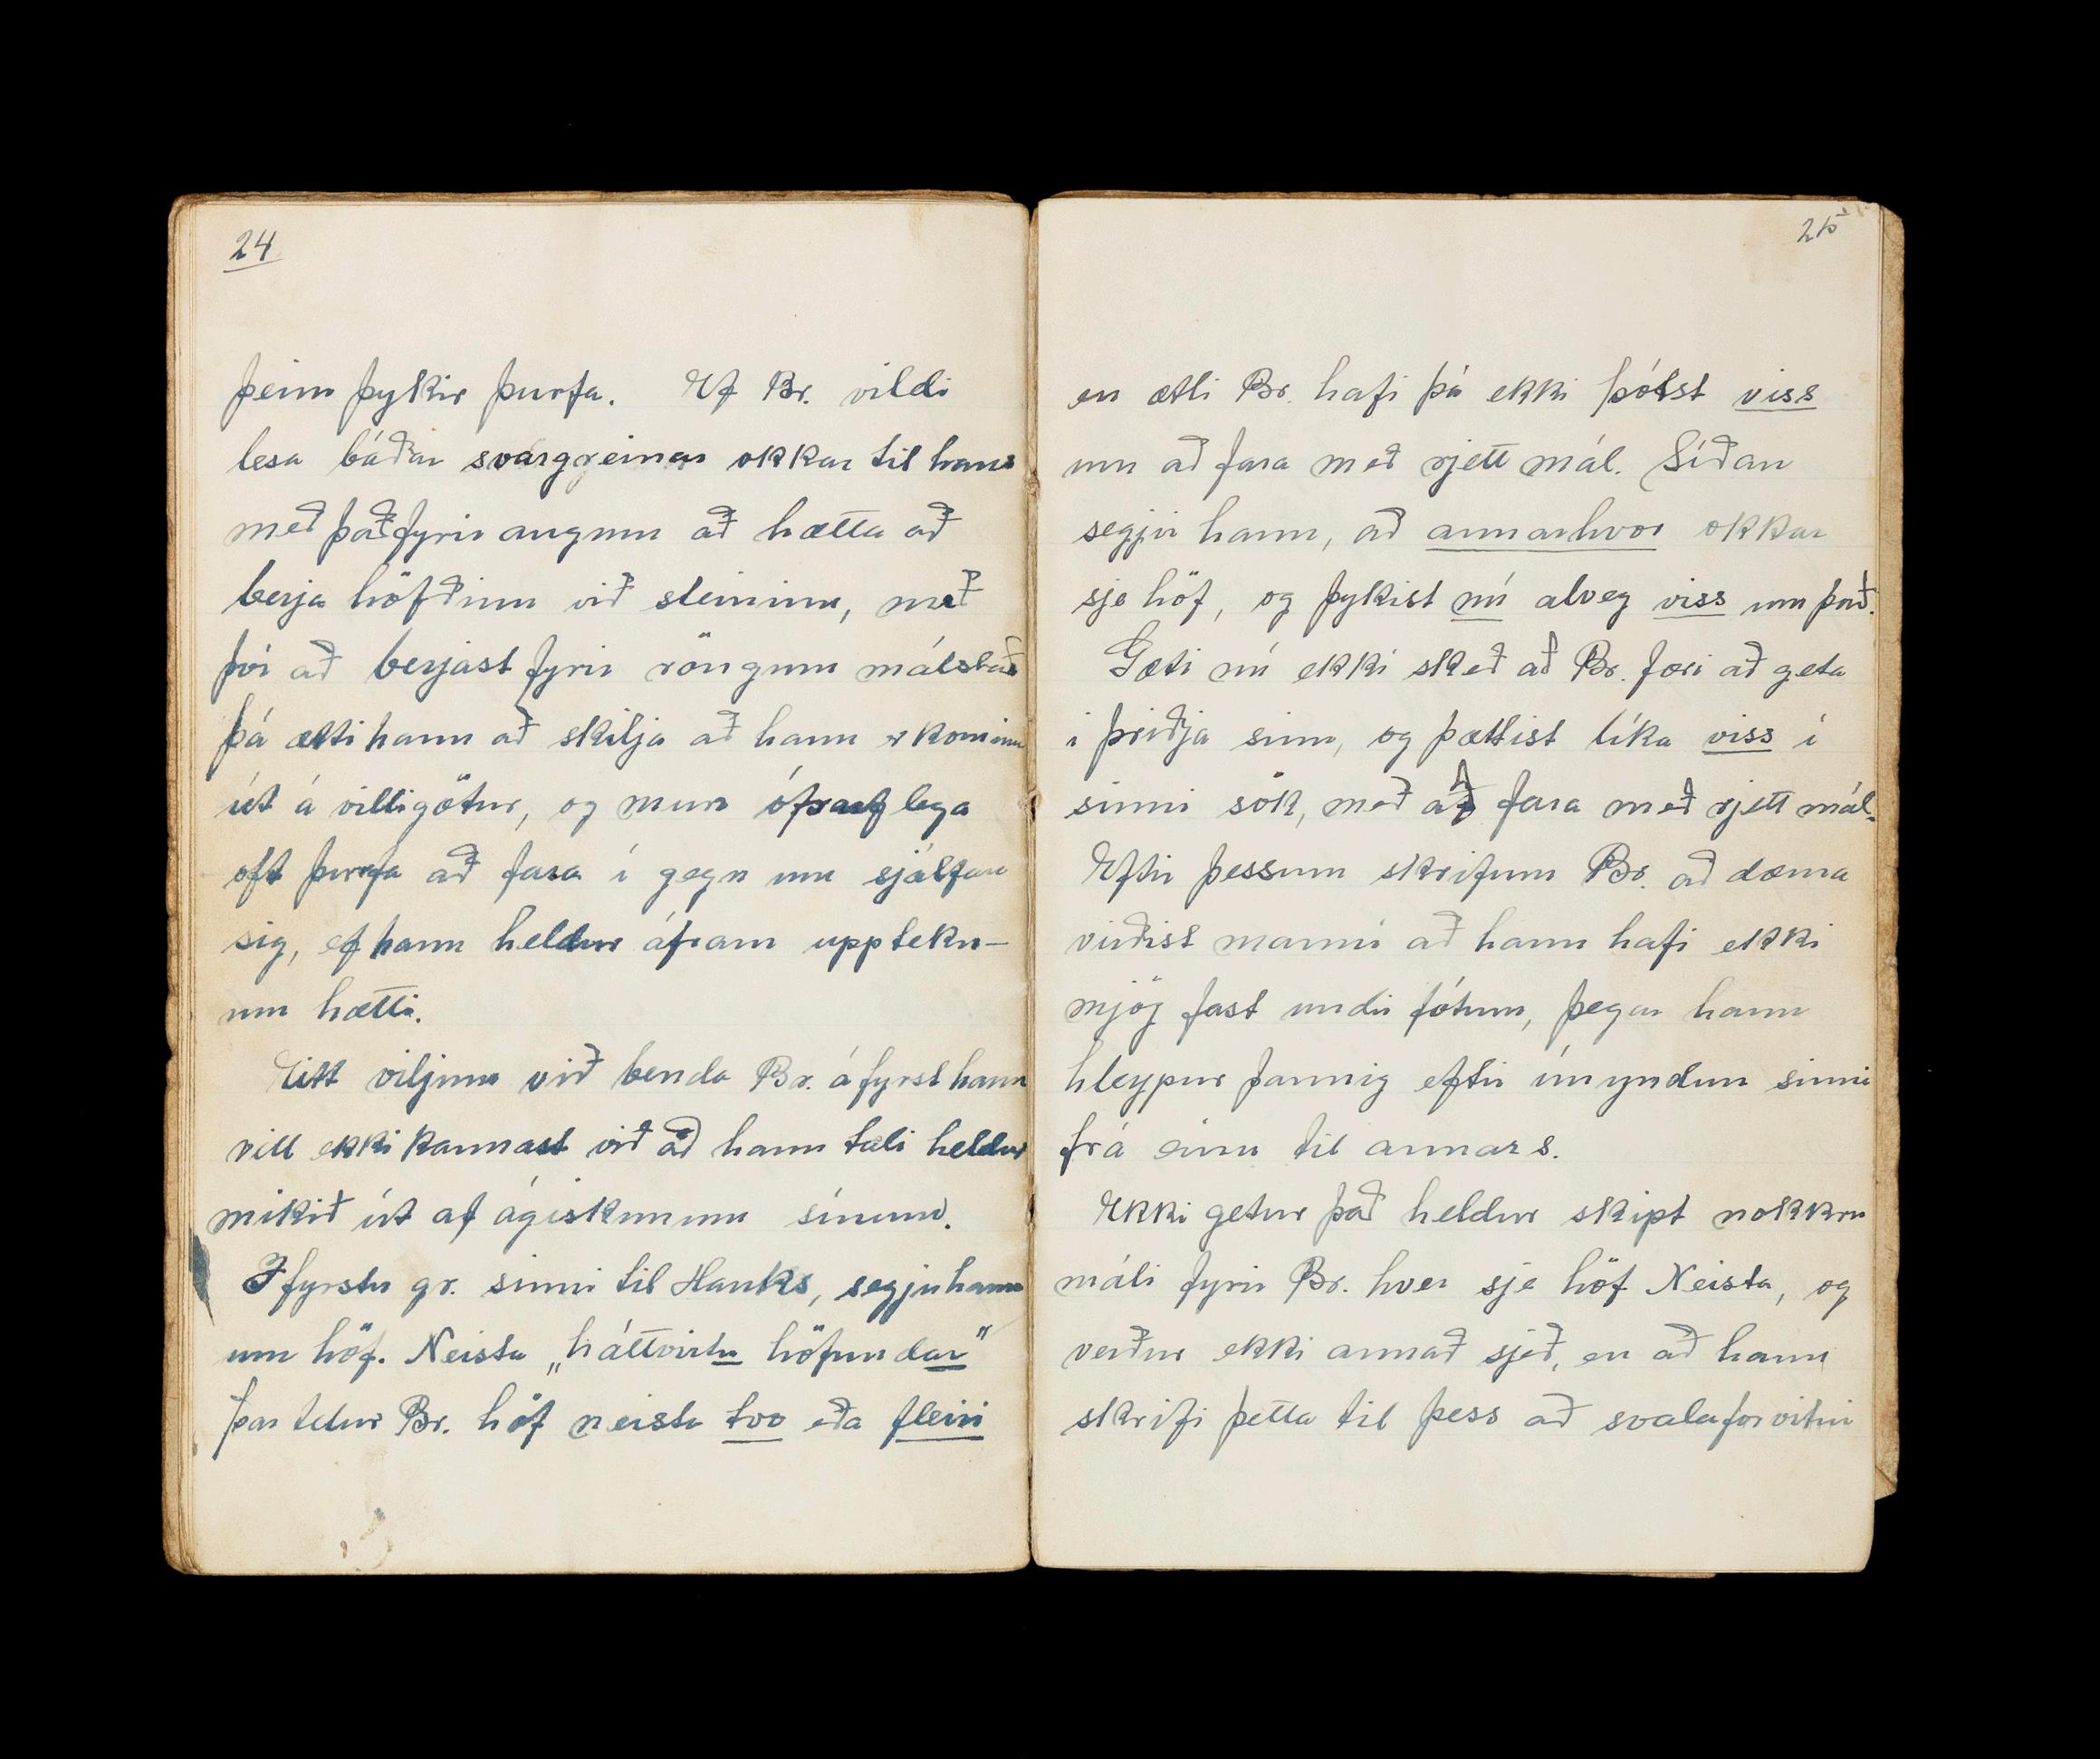 24
þeim þykir þurfa. Ef Br. vildi
lesa báðar svargreinar okkar til hans
með það fyrir augum að hætta að
berja höfðinu við steininn, með
því að berjast fyrir röngum málstað
þá ætti hann að skilja að hann er kominn
út á villigötur, og mun óþarflega
oft þurfa að fara í gegn um sjálfan
sig, ef hann heldur áfram uppteku-
um hætti.
Eitt viljum við benda Br. á fyrst hann
vill ekki kannast við að hann tali heldur
mikið út af ágiskunum sínum.
Í fyrstu gr. sinni til Hauks, segjir hann
um höf. Neista „háttvirtu höfundar"
þar telur Br. höf neista tvo eða fleiri
25
en ætli Br. hafi þá ekki þótst viss
um að fara með rjett mál. Síðan
segjir hann, að annarhvor okkar
sje höf, og þykist nú alveg viss um það.
Gæti nú ekki skeð að Br. færi að geta
í þriðja sinn, og þættist líka viss í
sinni sök, með að fara með rjett mál.
Eftir þessum skrifum Br. að dæma
virðist manni að hann hafi ekki
mjög fast undir fótum, þegar hann
hleypur þannig eftir ímyndun sinni
frá einu til annars.
Ekki getur það heldur skipt nokkru
máli fyrir Br. hver sje höf Neista, og
verður ekki annað sjeð, en að hann
skrifi þetta til þess að svala forvitni